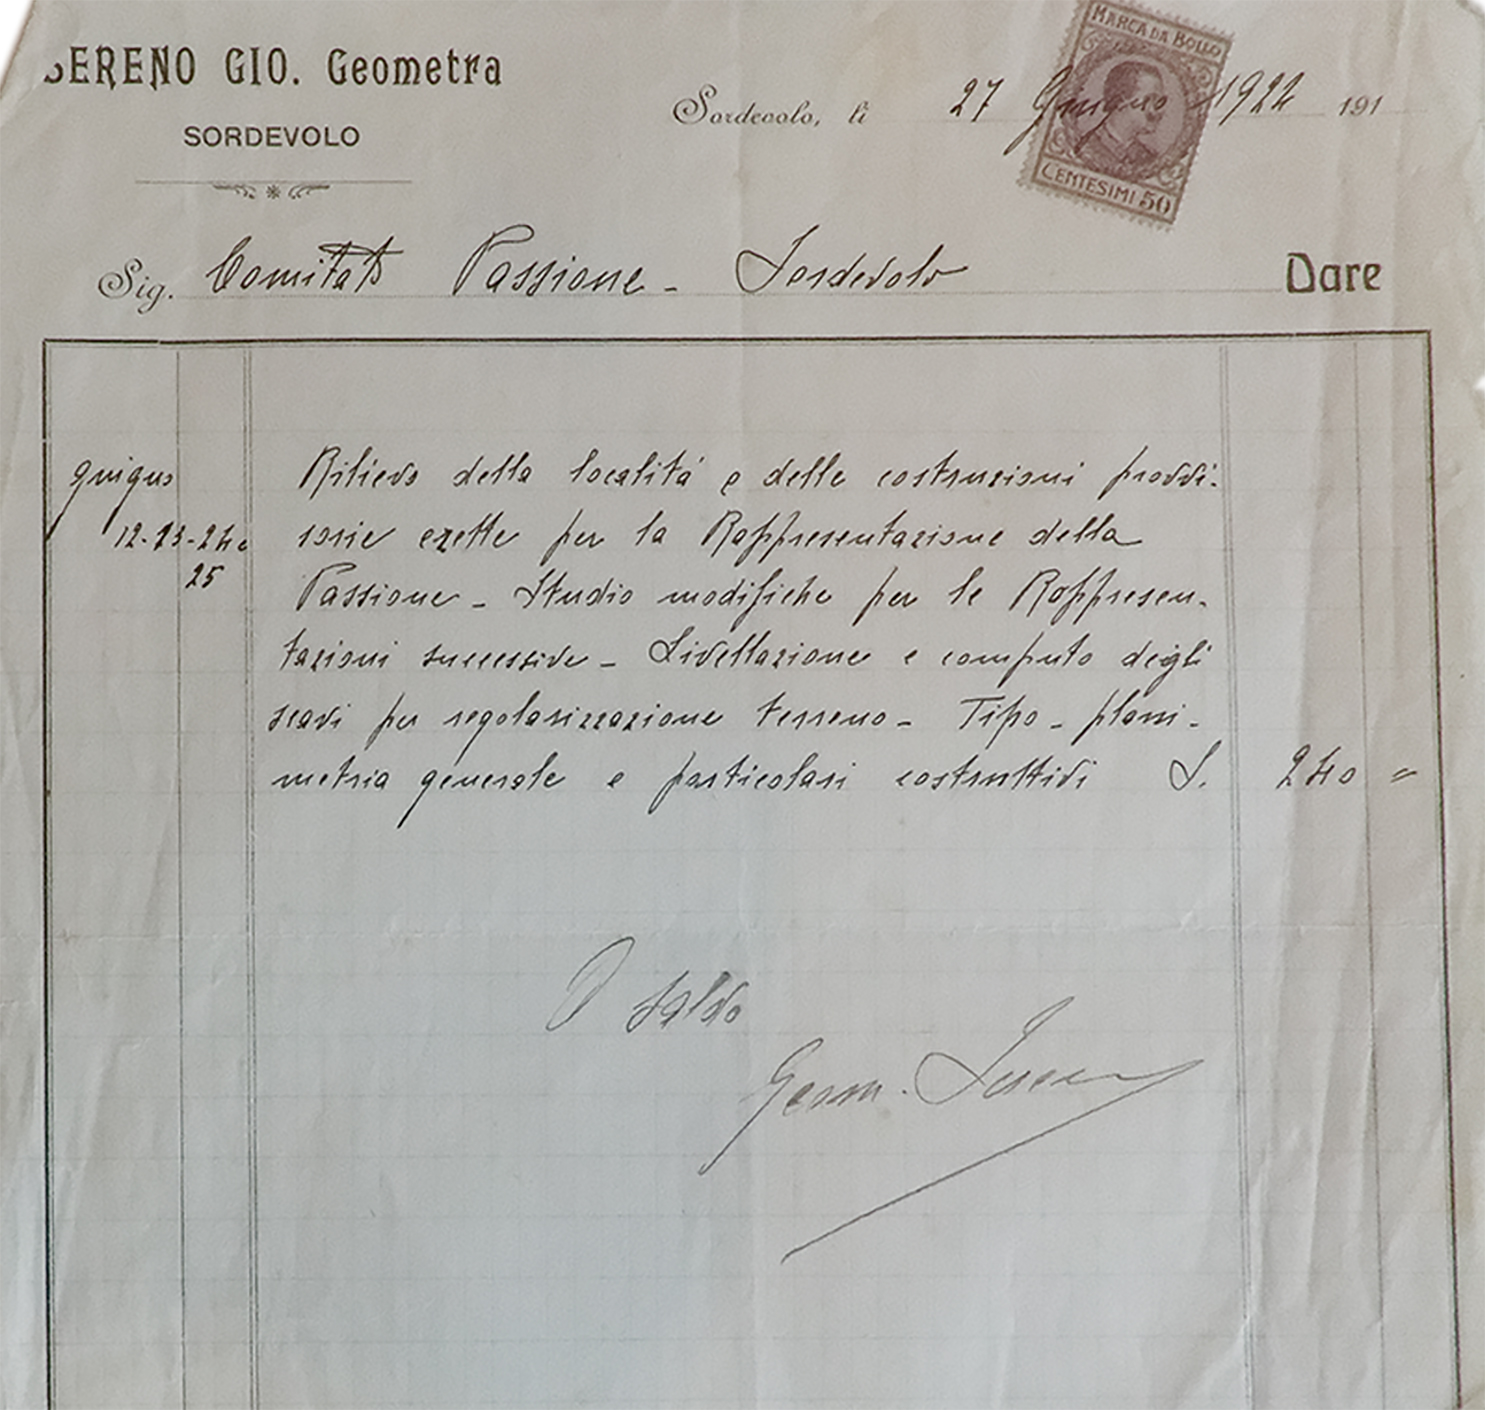 SERENO GIO. Geometra
SORDEVOLO
Sordevolo, li 27 Giugno 1924 191
MARCA DA BOLLO
CENTESIMI 50
Sig. Comitato Passione - Sordevolo Dare
giugno
12-23-24 e
25
Rilievo della località e delle costruzioni provvi-
sorie erette per la Rappresentazione della
Passione - Studio modifiche per le Rappresen-
tazioni successive - Livellazione e computo degli
scavi per regolarizzazione terreno - Tipo - plani-
metria generale e particolari costruttivi L. 240 =
A saldo
Geom. Sereno